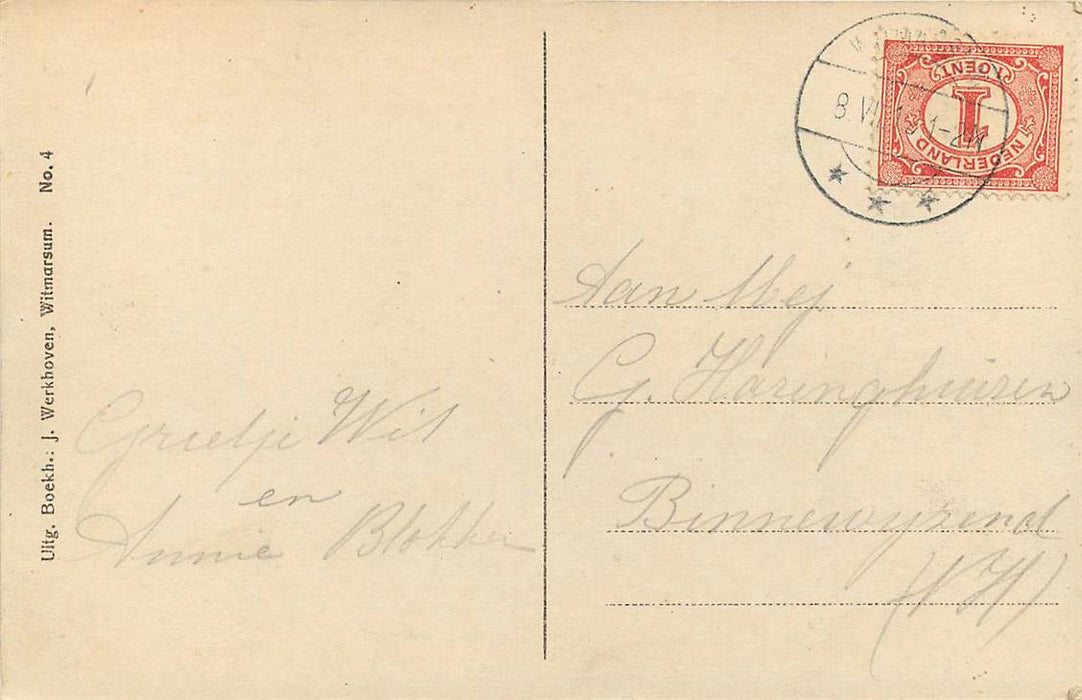 Uitg. Boekh.: J. Werkhoven, Witmarsum. No. 4
Grietje Wit
en
Annie Blokker
1 CENT
1
NEDERLAND
8. VII 1-2N
Aan Mej
G. Haringhuizen
Binnewyzend
(WH)